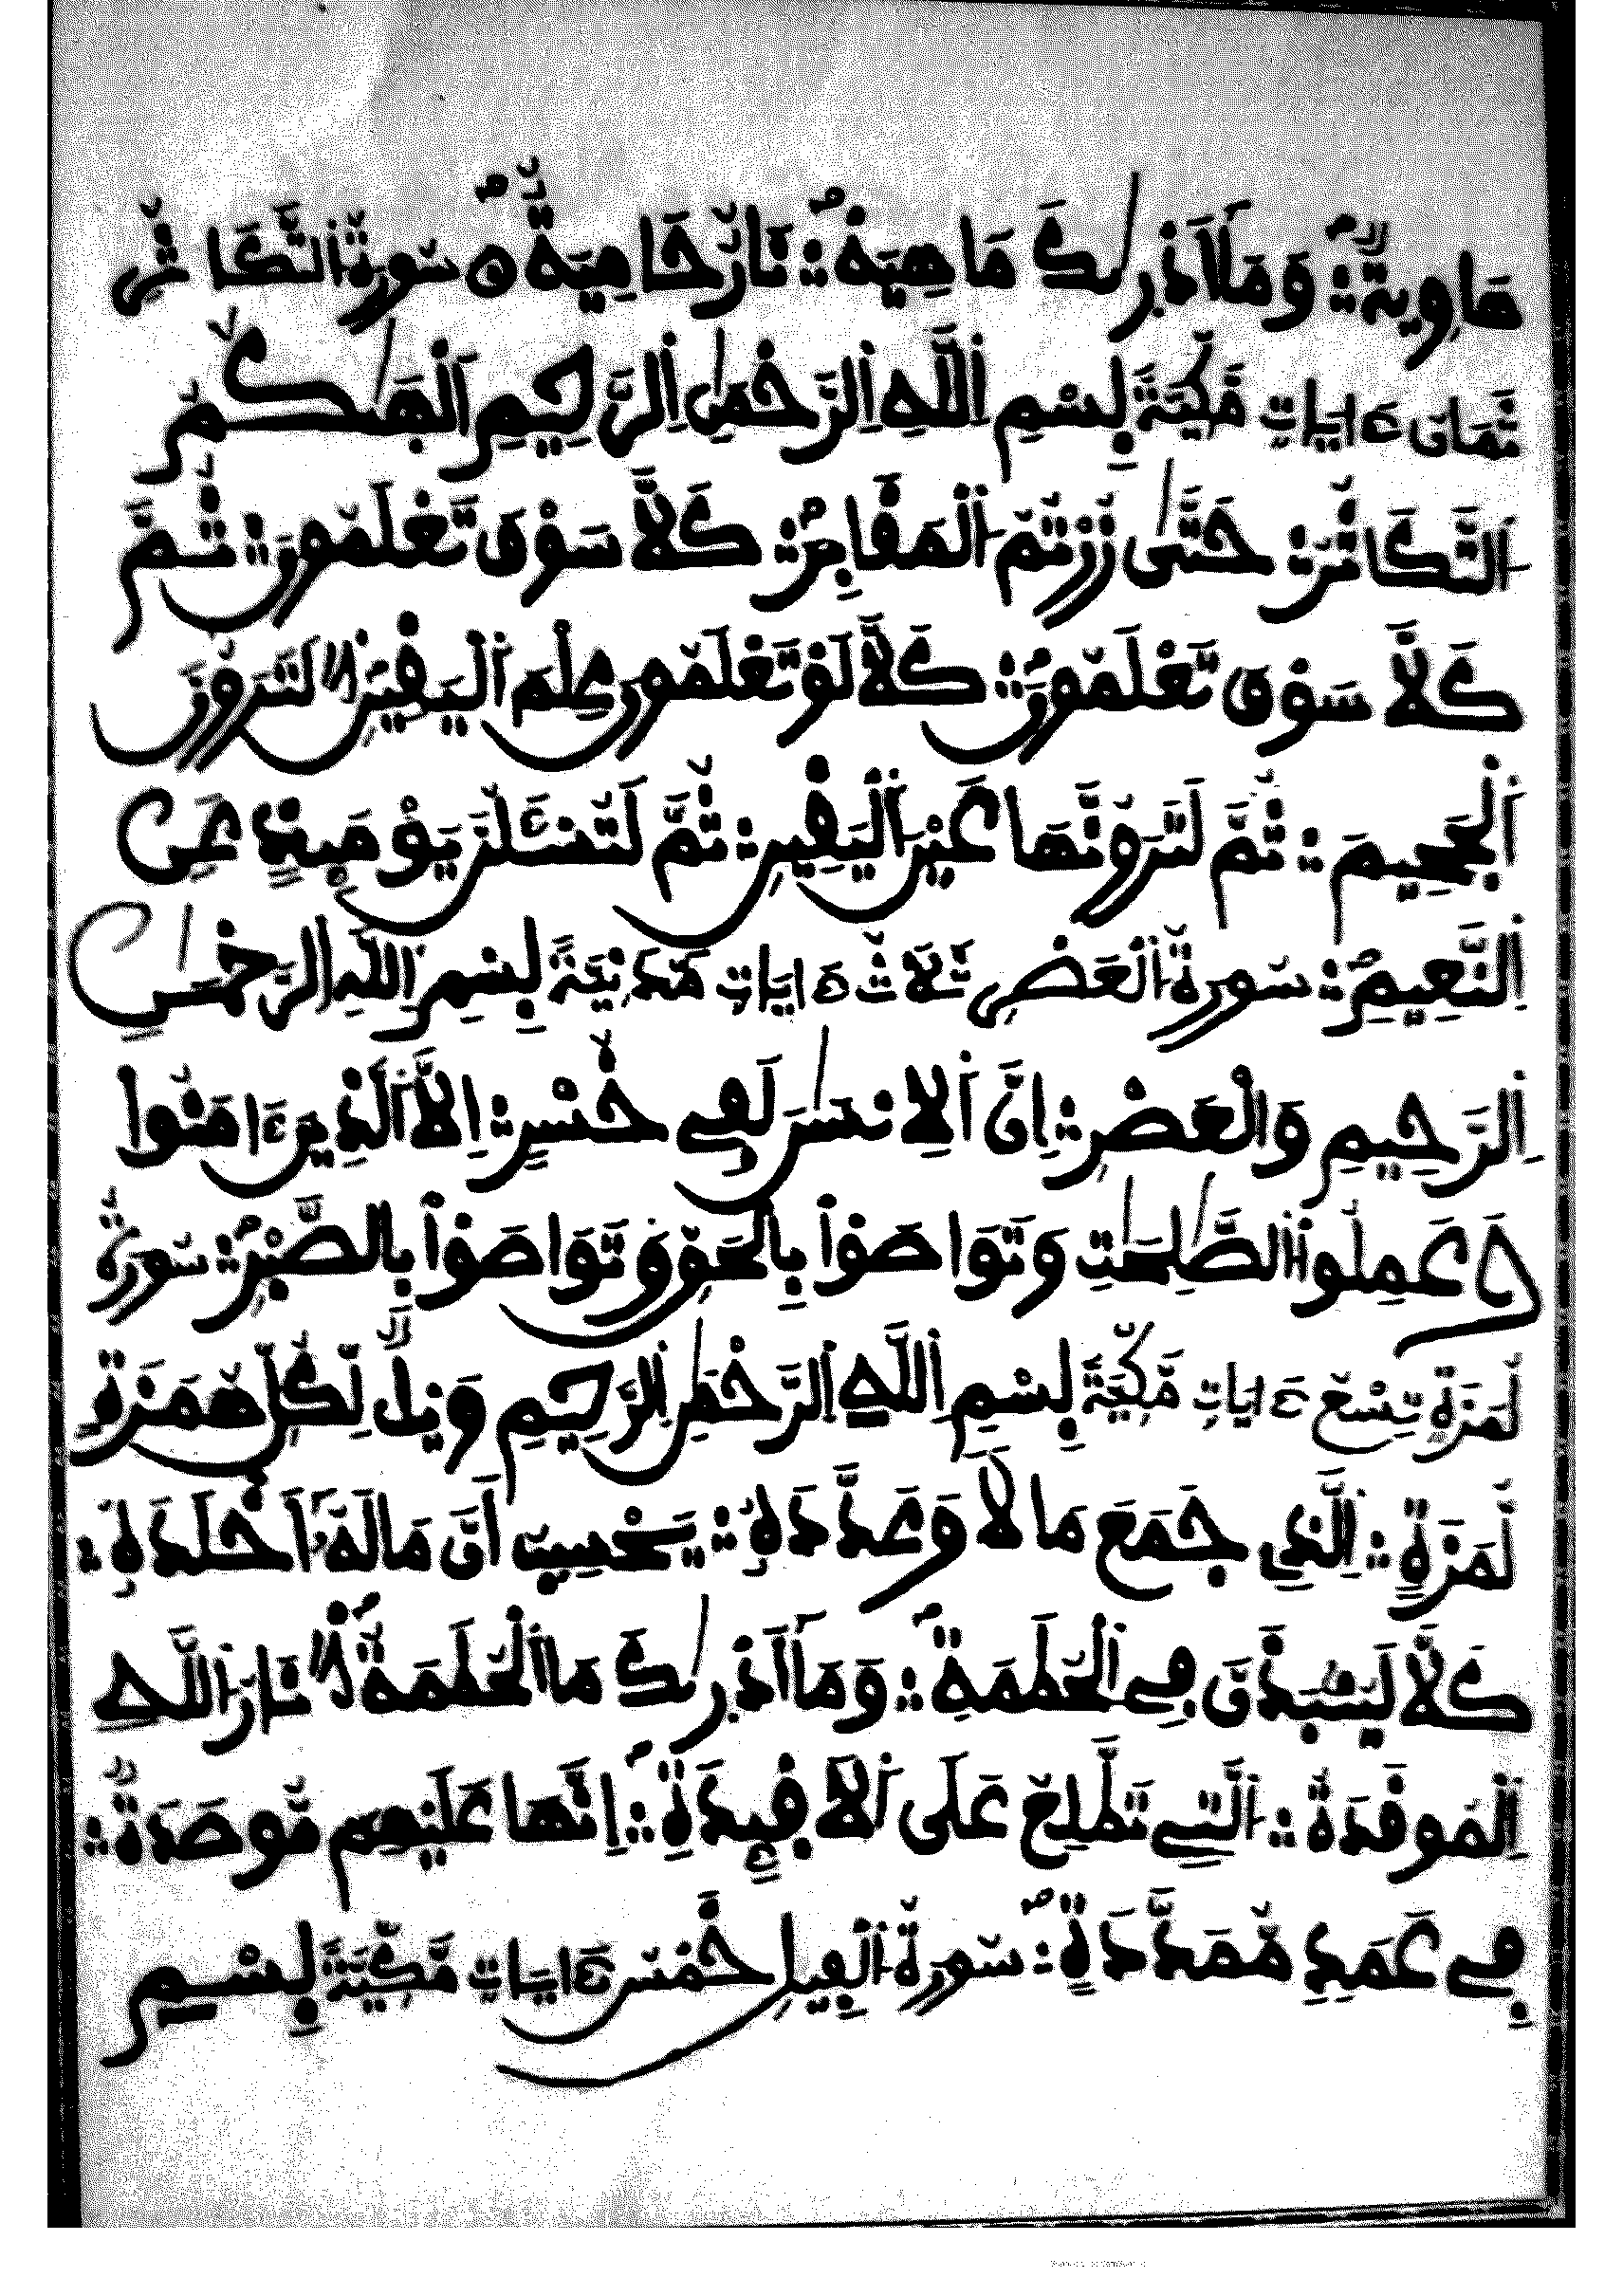 هَاوِيَةٌ ۞ وَمَا أَدْرَىٰكَ مَا هِيَهْ ۞ نَارٌ حَامِيَةٌ ۞ سورة التكاثر
ثماني ءايات مكية بِسْمِ اِللَّهِ اِلرَّحْمَٰنِ اِلرَّحِيمِ أَلْهَىٰكُمُ
اَلتَّكَاثُرُ ۞ حَتَّىٰ زُرْتُمُ اُلْمَقَابِرَ ۞ كَلَّا سَوْفَ تَعْلَمُونَ ۞ ثُمَّ
كَلَّا سَوْفَ تَعْلَمُونَ ۞ كَلَّا لَوْ تَعْلَمُونَ عِلْمَ اَلْيَقِينِ لَتَرَوُنَّ
اَلْجَحِيمَ ۞ ثُمَّ لَتَرَوُنَّهَا عَيْنَ اَلْيَقِينِ ۞ ثُمَّ لَتُسْـَٔلُنَّ يَوْمَئِذٍ عَنِ
اِلنَّعِيمِ ۞ سورة العصر ثلاث ءايات مدنية بِسْمِ اِللَّهِ اِلرَّحْمَٰنِ
اِلرَّحِيمِ وَالْعَصْرِ ۞ إِنَّ اَلْإِنسَٰنَ لَفِي خُسْرٍ ۞ اِلَّا اَلَّذِينَ ءَامَنُوا
وَعَمِلُوا اُلصَّٰلِحَٰتِ وَتَوَاصَوْا بِالْحَقِّ وَتَوَاصَوْا بِالصَّبْرِ ۞ سورة
لمزة تسع ءايات مكية بِسْمِ اِللَّهِ اِلرَّحْمَٰنِ اِلرَّحِيمِ وَيْلٌ لِّكُلِّ هُمَزَةٍ
لُّمَزَةٍ ۞ اِلَّذِي جَمَعَ مَالًا وَعَدَّدَهُ ۞ يَحْسِبُ أَنَّ مَالَهُ أَخْلَدَهُ ۞
كَلَّا لَيُنۢبَذَنَّ فِي اِلْحُطَمَةِ ۞ وَمَا أَدْرَىٰكَ مَا اَلْحُطَمَةُ نَارُ اُللَّهِ
اِلْمُوقَدَةُ ۞ اُلَّتِي تَطَّلِعُ عَلَى اَلْأَفْـِٕدَةِ ۞ إِنَّهَا عَلَيْهِم مُّوصَدَةٌ ۞
فِي عَمَدٍ مُّمَدَّدَةٍ ۞ سورة الفيل خمس ءايات مكية بِسْمِ